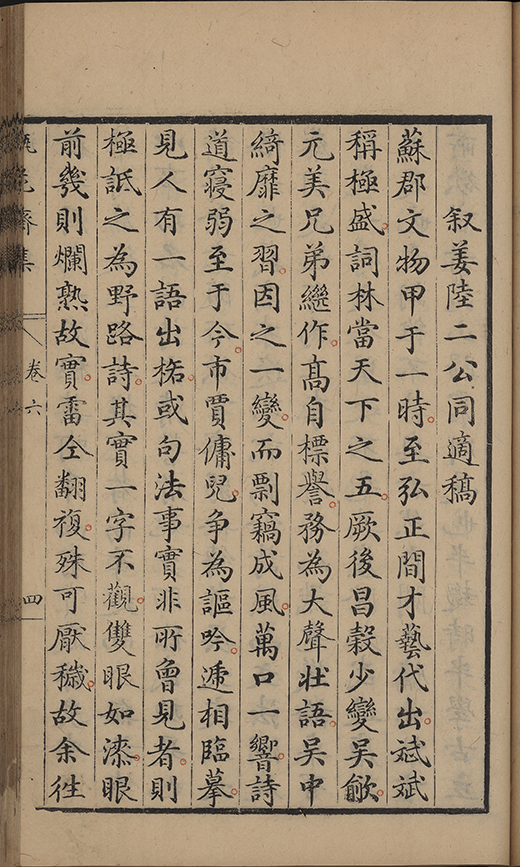 叙姜陸二公同適稿
蘇郡文物甲于一時。至弘正間才藝代出。斌斌
稱極盛。詞林當天下之五。厥後昌穀少變吳歈。
元美兄弟繼作。髙自標譽。務為大聲壯語。吳中
綺靡之習。因之一變。而剽竊成風。萬口一響。詩
道寖弱。至于今。市賈傭兒。争為謳吟。遞相臨摹。
見人有一語出格。或句法事實非所曾見者。則
極詆之為野路詩。其實一字不觀。雙眼如漆。眼
前幾則爛熟故實。雷仝翻複。殊可厭穢。故余徃
卷六
四